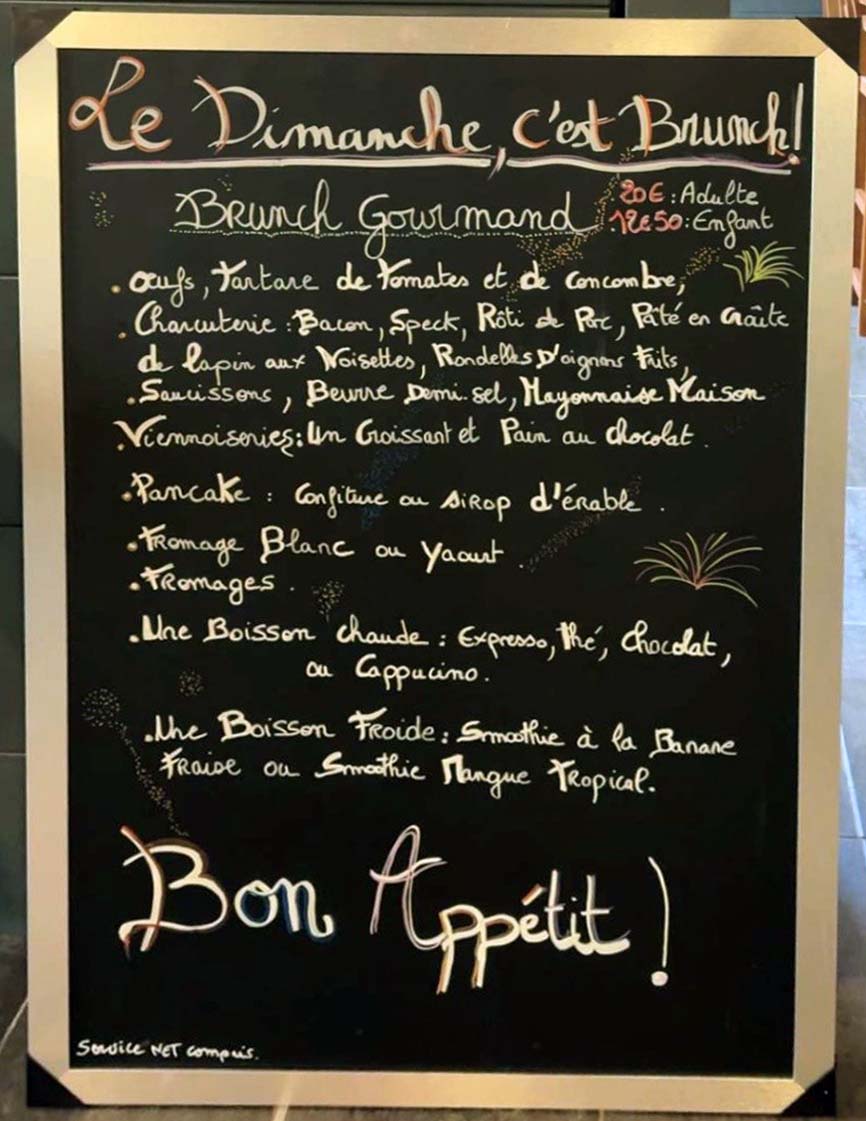 Le Dimanche, c'est Brunch!
Brunch Gourmand
20€ : Adulte
12€50 : Enfant
. œufs, Tartare de Tomates et de concombre,
. Charcuterie : Bacon, Speck, Rôti de Porc, Pâté en Croûte
de lapin aux Noisettes, Rondelles D'oignons Frits,
. Saucissons, Beurre Demi-sel, Mayonnaise Maison
. Viennoiseries : Un Croissant et Pain au chocolat .
. Pancake : Confiture ou sirop d'érable .
. Fromage Blanc ou Yaourt .
. Fromages .
. Une Boisson chaude : Expresso, thé, chocolat,
ou Cappucino.
. Une Boisson Froide : Smoothie à la Banane
Fraise ou Smoothie Mangue Tropical.
Bon Appétit !
Service NET compris.